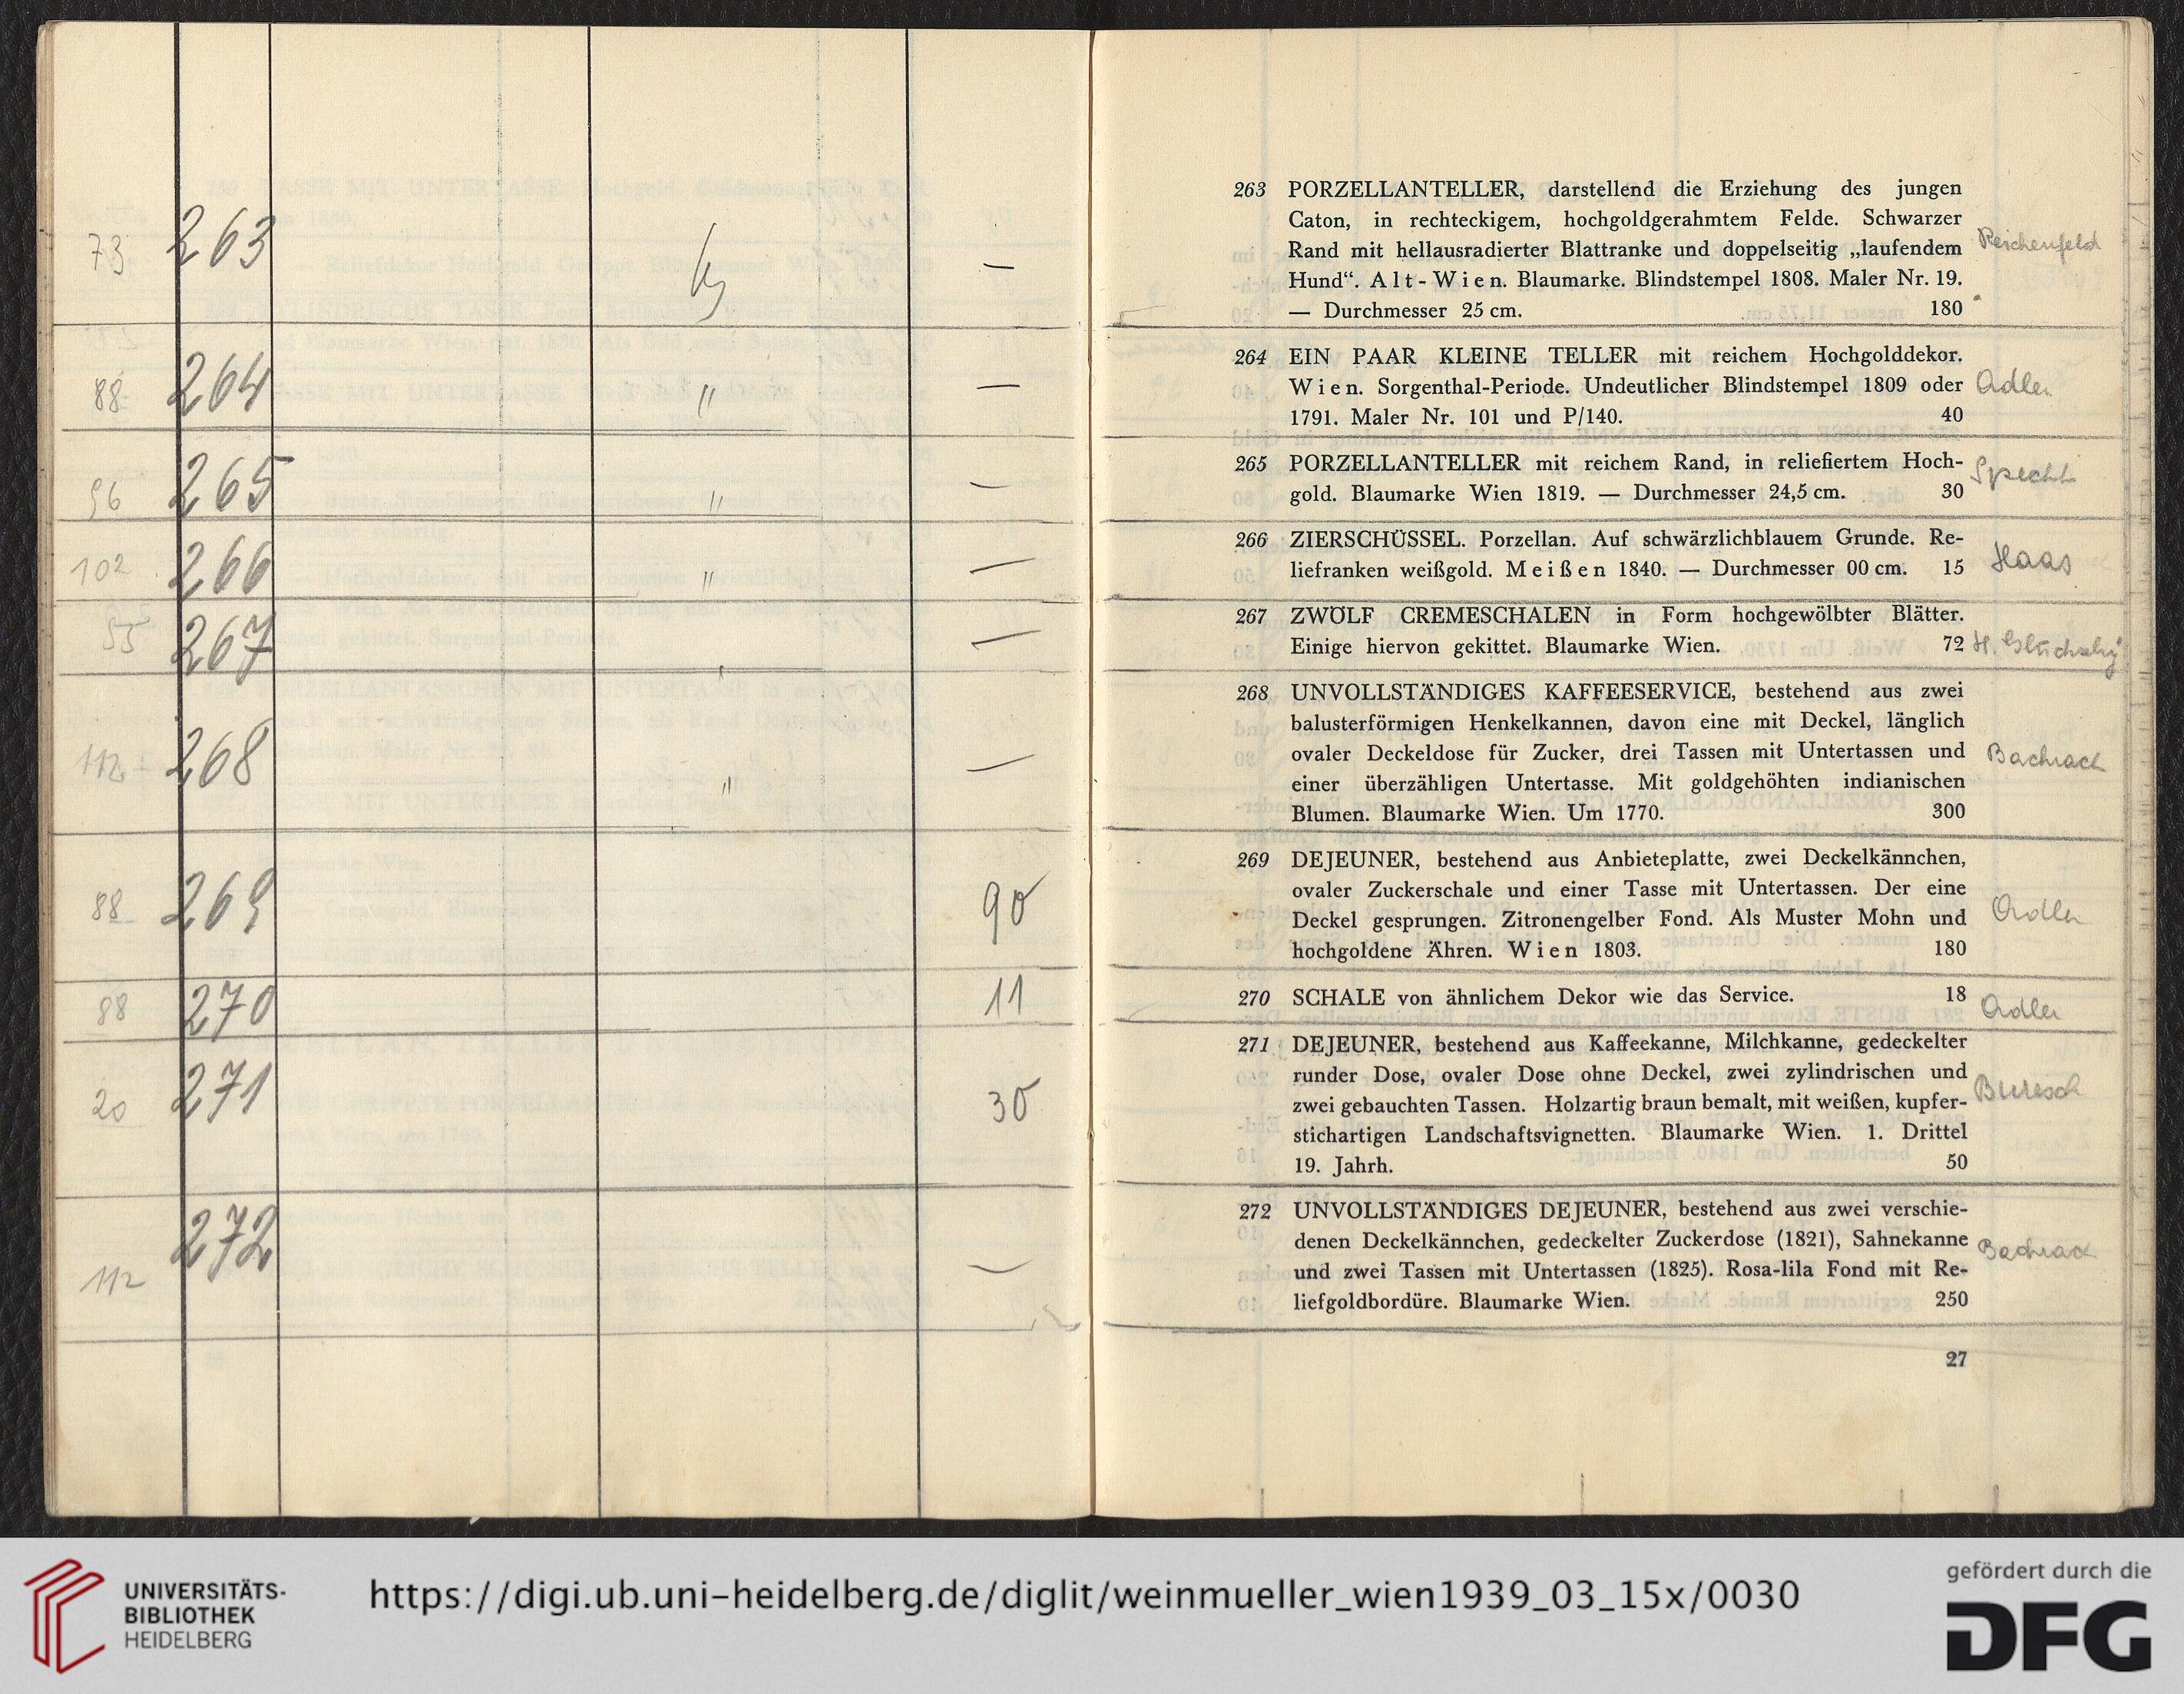 73 263 —
88 264 " —
96 265 " —
102 266 " —
55 267 " —
112 268 " —
88 269 90
88 270 11
20 271 30
112 272 —
263 PORZELLANTELLER, darstellend die Erziehung des jungen
Caton, in rechteckigem, hochgoldgerahmtem Felde. Schwarzer
Rand mit hellausradierter Blattranke und doppelseitig „laufendem
Hund“. Alt-Wien. Blaumarke. Blindstempel 1808. Maler Nr. 19.
— Durchmesser 25 cm. 180
Reichenfeld
264 EIN PAAR KLEINE TELLER mit reichem Hochgolddekor.
Wien. Sorgenthal-Periode. Undeutlicher Blindstempel 1809 oder
1791. Maler Nr. 101 und P/140. 40
Adler
265 PORZELLANTELLER mit reichem Rand, in reliefiertem Hoch-
gold. Blaumarke Wien 1819. — Durchmesser 24,5 cm. 30
Specht
266 ZIERSCHÜSSEL. Porzellan. Auf schwärzlichblauem Grunde. Re-
liefranken weißgold. Meißen 1840. — Durchmesser 00 cm. 15
Haas
267 ZWÖLF CREMESCHALEN in Form hochgewölbter Blätter.
Einige hiervon gekittet. Blaumarke Wien. 72
268 UNVOLLSTÄNDIGES KAFFEESERVICE, bestehend aus zwei
balusterförmigen Henkelkannen, davon eine mit Deckel, länglich
ovaler Deckeldose für Zucker, drei Tassen mit Untertassen und
einer überzähligen Untertasse. Mit goldgehöhten indianischen
Blumen. Blaumarke Wien. Um 1770. 300
Bachrach
269 DEJEUNER, bestehend aus Anbieteplatte, zwei Deckelkännchen,
ovaler Zuckerschale und einer Tasse mit Untertassen. Der eine
Deckel gesprungen. Zitronengelber Fond. Als Muster Mohn und
hochgoldene Ähren. Wien 1803. 180
Adler
270 SCHALE von ähnlichem Dekor wie das Service. 18
Adler
271 DEJEUNER, bestehend aus Kaffeekanne, Milchkanne, gedeckelter
runder Dose, ovaler Dose ohne Deckel, zwei zylindrischen und
zwei gebauchten Tassen. Holzartig braun bemalt, mit weißen, kupfer-
stichartigen Landschaftsvignetten. Blaumarke Wien. 1. Drittel
19. Jahrh. 50
Buresch
272 UNVOLLSTÄNDIGES DEJEUNER, bestehend aus zwei verschie-
denen Deckelkännchen, gedeckelter Zuckerdose (1821), Sahnekanne
und zwei Tassen mit Untertassen (1825). Rosa-lila Fond mit Re-
liefgoldbordüre. Blaumarke Wien. 250
Bachrach
27
UNIVERSITÄTS-
BIBLIOTHEK
HEIDELBERG
https://digi.ub.uni-heidelberg.de/diglit/weinmueller_wien1939_03_15x/0030
gefördert durch die
DFG